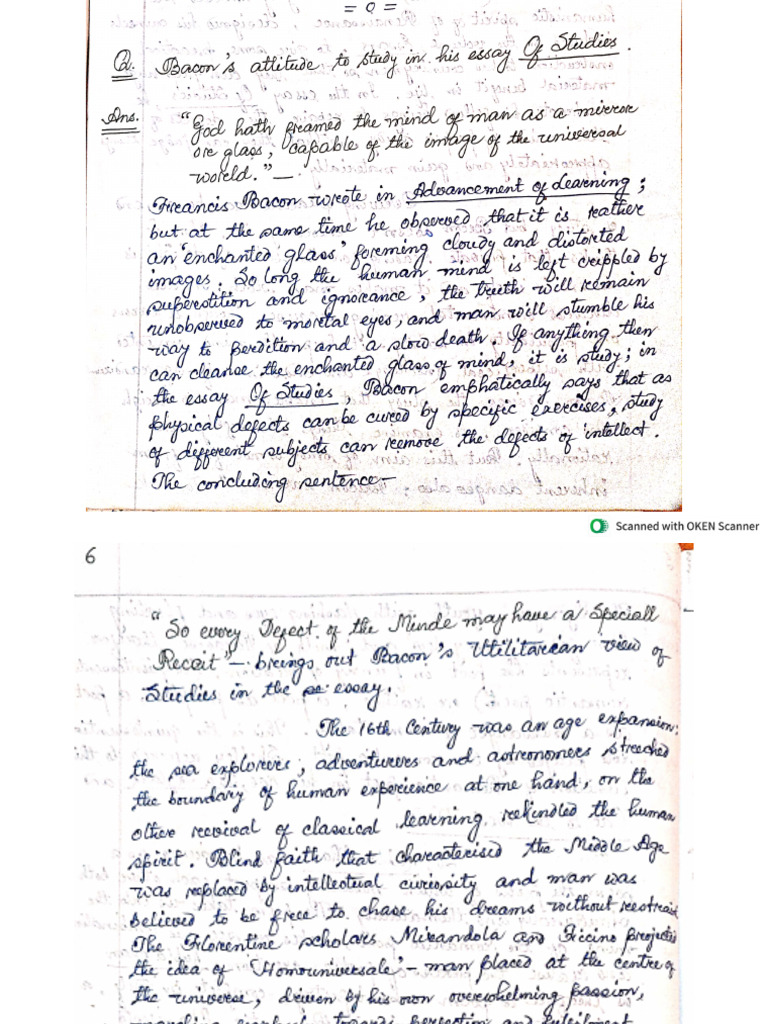 = Q =
Q. Bacon's attitude to study in his essay Of Studies.
Ans. "God hath framed the mind of man as a mirror
or glass, capable of the image of the universal
world." —
Francis Bacon wrote in Advancement of Learning;
but at the same time he observed that it is rather
an 'enchanted glass' forming cloudy and distorted
images. So long the human mind is left crippled by
superstition and ignorance, the truth will remain
unobserved to mortal eyes, and man will stumble his
way to perdition and a slow death. If anything then
can cleanse the enchanted glass of mind, it is study; in
the essay Of Studies, Bacon emphatically says that as
physical defects can be cured by specific exercises, study
of different subjects can remove the defects of intellect.
The concluding sentence-
Scanned with OKEN Scanner
6
"So every Defect of the Minde may have a Speciall
Receit" — brings out Bacon's Utilitarian view of
Studies in the essay.
The 16th Century was an age expansion:
the sea explorer, adventurers and astronomers streched
the boundary of human experience at one hand, on the
other revival of classical learning rekindled the human
spirit. Blind faith that characterised the Middle Age
was replaced by intellectual curiosity and man was
believed to be free to chase his dreams without restraid
The Florentine scholars Mirandola and Ficino projected
the idea of 'Homouniversale' - man placed at the centre of
the universe, driven by his own overwhelming passion,
towards perfection and fulfilment